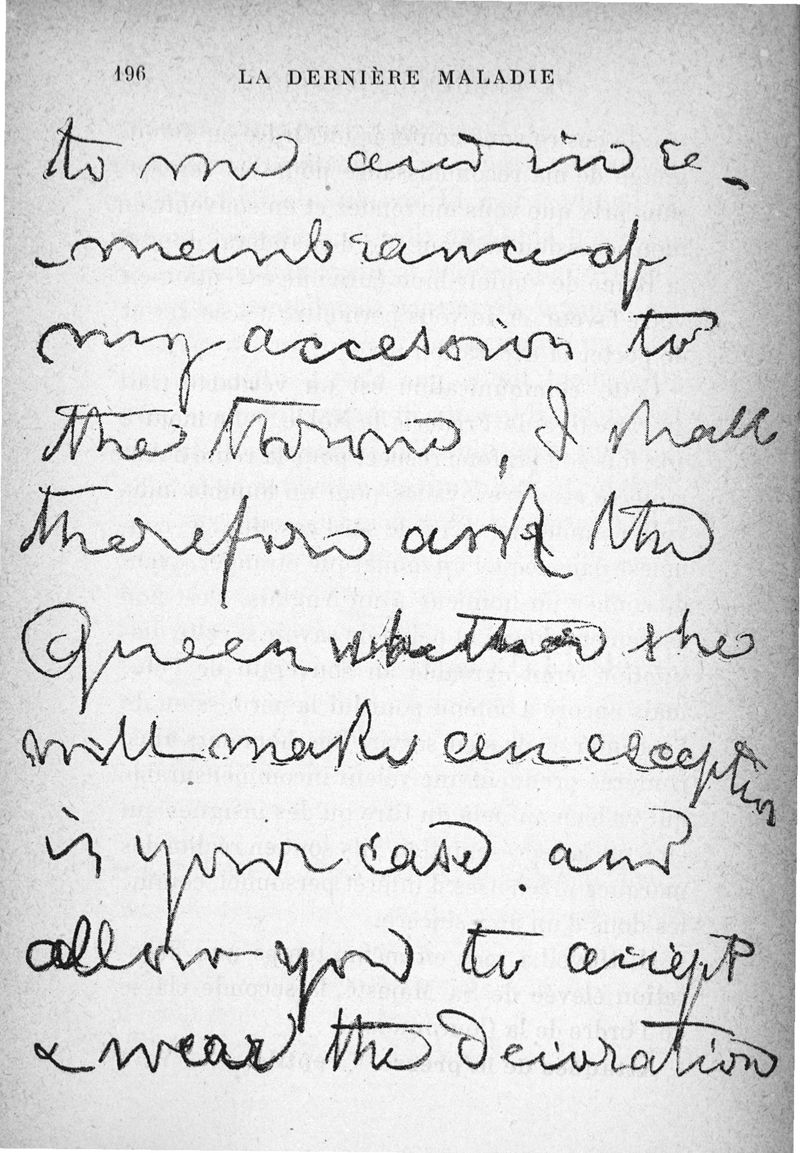 196 LA DERNIÈRE MALADIE
to me and in re-
-meinbrance of
my accession to
the throne, I shall
therefore ask the
Queen whether she
will make an exception
in your case and
allow you to accept
& wear the decoration